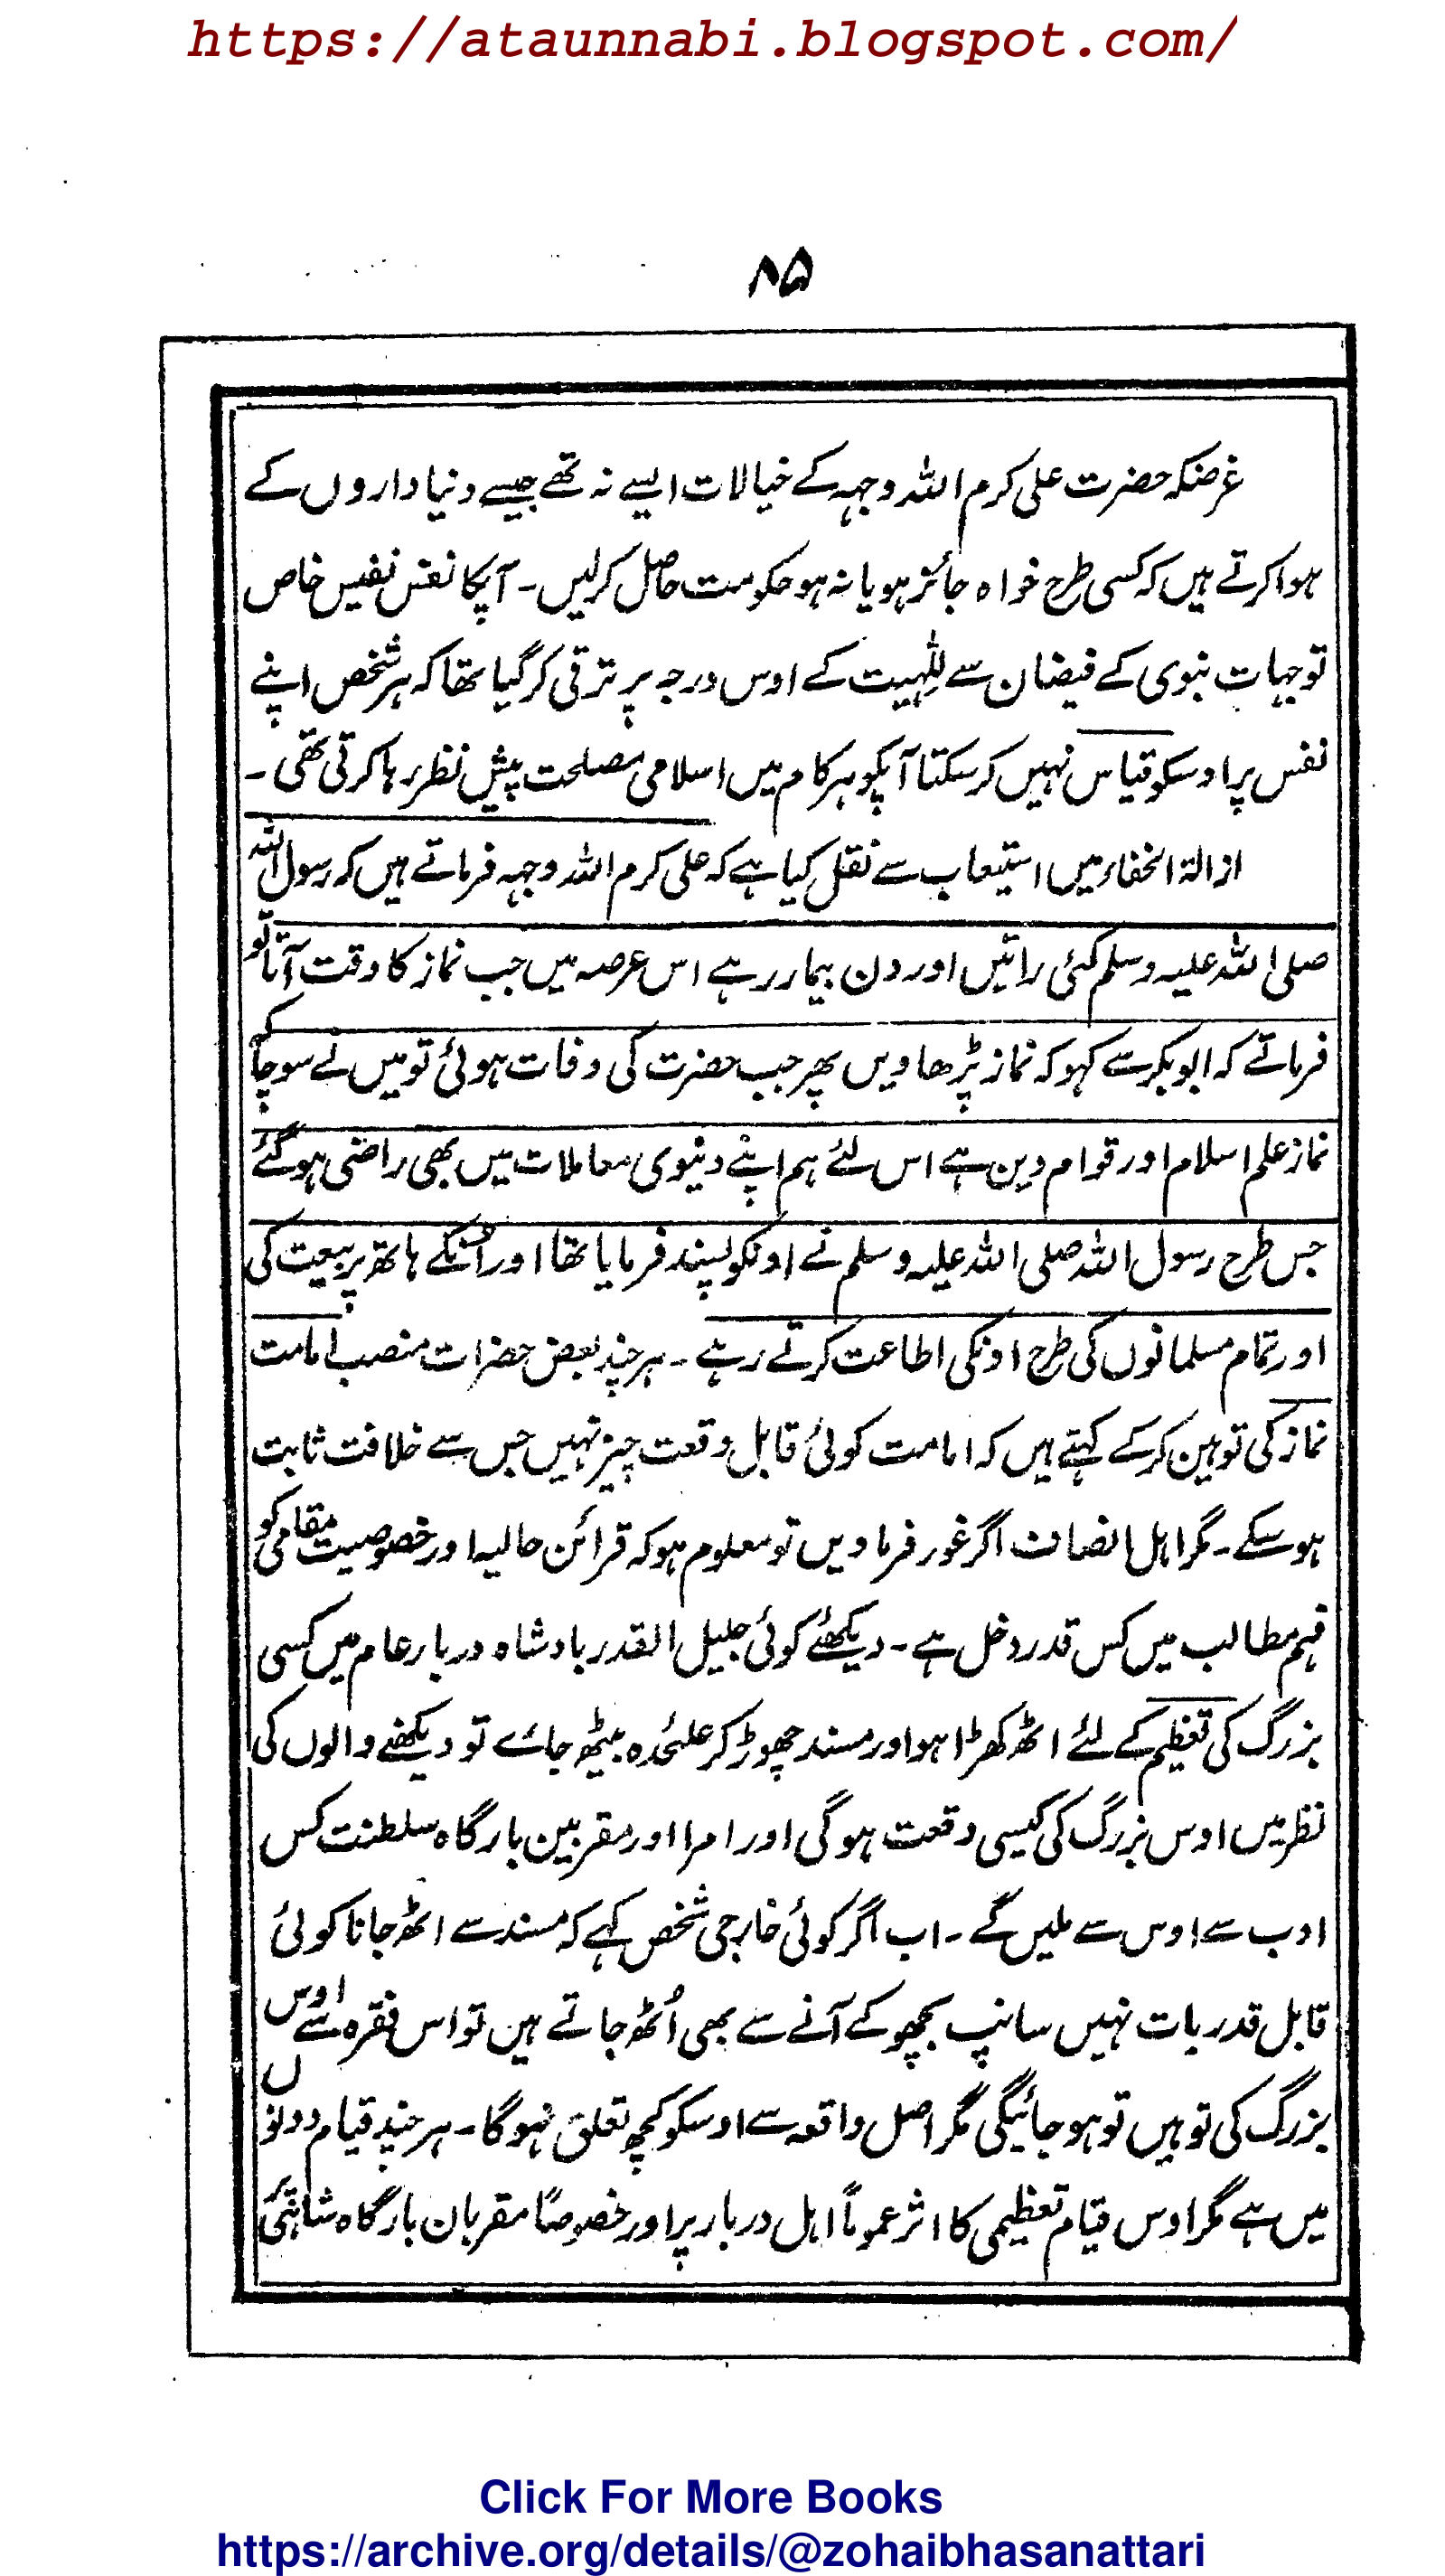 https://ataunnabi.blogspot.com/
۸۵
غرضکہ حضرت علی کرم اللہ وجہہ کے خیالات ایسے نہ تھے جیسے دنیا داروں کے
ہوا کرتے ہیں کہ کسی طرح خواہ جائز ہو یا نہ ہو حکومت حاصل کرلیں۔ آپکا نفس نفیس خاص
توجہات نبوی کے فیضان سے للہیت کے اوس درجہ پر ترقی کر گیا تھا کہ ہر شخص اپنے
نفس پر اوسکو قیاس نہیں کر سکتا آپکو ہر کام میں اسلامی مصلحت پیش نظر رہا کرتی تھی۔
ازالۃ الخفاء میں استیعاب سے نقل کیا ہے کہ علی کرم اللہ وجہہ فرماتے ہیں کہ رسول اللہ
صلی اللہ علیہ وسلم کئی راتیں اور دن بیمار رہے اس عرصہ میں جب نماز کا وقت آتا تو
فرماتے کہ ابوبکر سے کہو کہ نماز پڑھا ویں پھر جب حضرت کی وفات ہوئی تو میں نے سوچا کہ
نماز علم اسلام اور قوام دین ہے اس لئے ہم اپنے دنیوی معاملات میں بھی راضی ہوگئے
جس طرح رسول اللہ صلی اللہ علیہ وسلم نے اونکو پسند فرمایا تھا اور اُنکے ہاتھ پر بیعت کی
اور تمام مسلمانوں کی طرح اونکی اطاعت کرتے رہے۔ ہر چند بعض حضرات منصب امامت
نماز کی توہین کرکے کہتے ہیں کہ امامت کوئی قابل وقعت چیز نہیں جس سے خلافت ثابت
ہو سکے۔ مگر اہل انصاف اگر غور فرما ویں تو معلوم ہو کہ قرائن حالیہ اور خصوصیت مقامی کو
فہم مطالب میں کس قدر دخل ہے۔ دیکھئے کوئی جلیل القدر بادشاہ دربار عام میں کسی
بزرگ کی تعظیم کے لئے اٹھ کھڑا ہو اور مسند چھوڑ کر علیٰحدہ بیٹھ جائے تو دیکھنے والوں کی
نظر میں اوس بزرگ کی کیسی وقعت ہوگی اور امرا اور مقربین بارگاہ سلطنت کس
ادب سے اوس سے ملیں گے۔ اب اگر کوئی خارجی شخص کہے کہ مسند سے اٹھ جانا کوئی
قابل قدر بات نہیں سانپ بچھو کے آنے سے بھی اُٹھ جاتے ہیں تو اس فقرہ سے اوس
بزرگ کی توہیں تو ہو جائیگی مگر اصل واقعہ سے اوسکو کچھ تعلق نہوگا۔ ہر چند قیام دونوں
میں ہے مگر اوس قیام تعظیمی کا اثر عموماً اہل دربار پر اور خصوصاً مقربان بارگاہ شاہی پر
Click For More Books
https://archive.org/details/@zohaibhasanattari